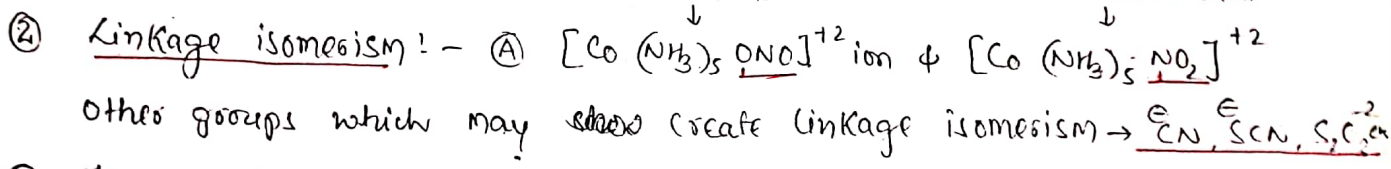 ② Linkage isomerism! - Ⓐ [Co (NH₃)₅ ONO]⁺² ion & [Co (NH₃)₅ NO₂]⁺²
Other groups which may create linkage isomerism → CN, SCN,